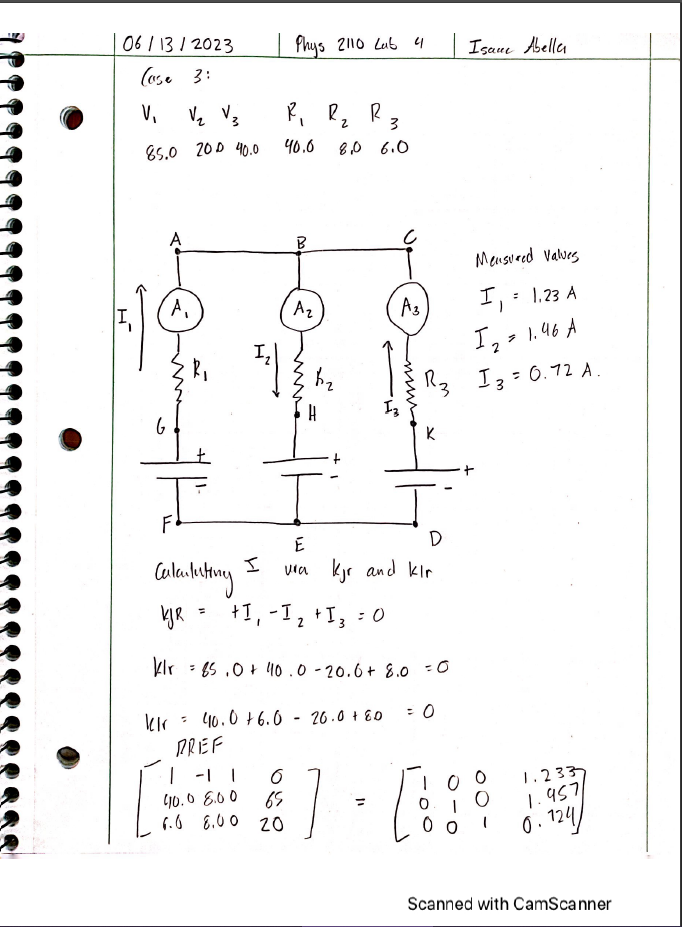 06/13/2023 Phys 2110 Lab 4 Isaac Abella
Case 3:
V₁ V₂ V₃ R₁ R₂ R₃
85.0 20.0 40.0 40.0 8.0 6.0
A B C
Measured Values
A₁ A₂ A₃
I₁ = 1.23 A
I₁
I₂ = 1.46 A
I₂
R₁ R₂ R₃
I₃ = 0.72 A.
I₃
G H K
+ + +
- - -
F E D
Calculating I via kjr and klr
kjR = +I₁ - I₂ + I₃ = 0
klr = 85.0 + 40.0 - 20.0 + 8.0 = 0
klr = 40.0 + 6.0 - 20.0 + 8.0 = 0
RREF
1 -1 1 0 1 0 0 1.233
40.0 8.00 65 = 0 1 0 1.957
6.0 8.00 20 0 0 1 0.724
Scanned with CamScanner